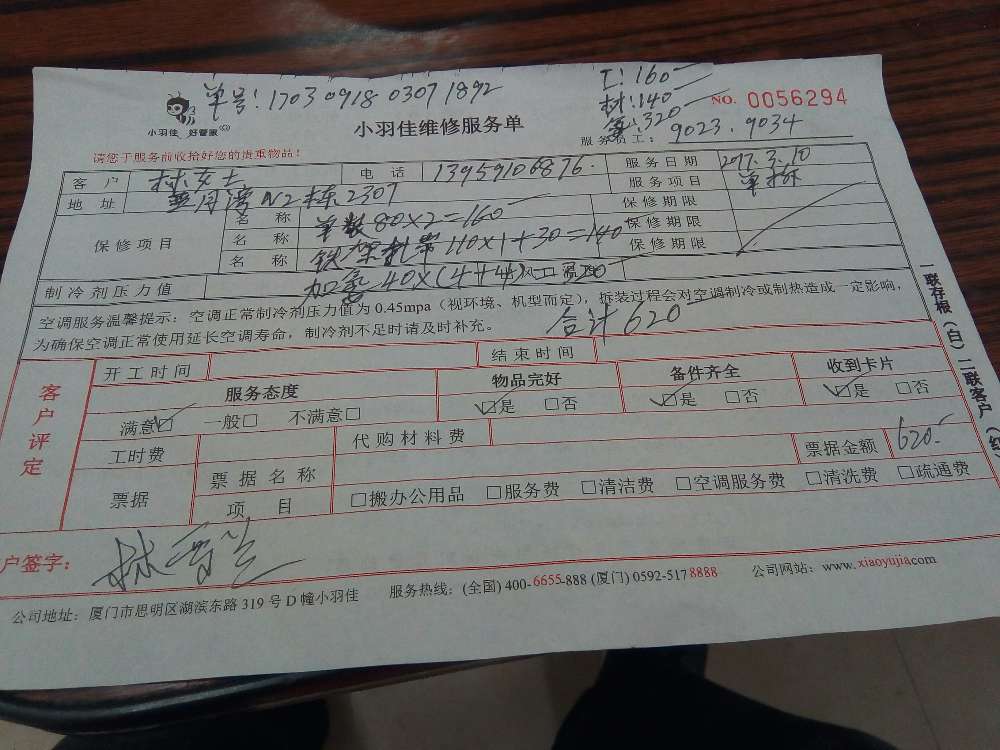 单号:1703 0918 0307 1892
工:160
材:140
氟:320
NO. 0056294
小羽佳 好管家
小羽佳维修服务单
服务员工: 9023.9034
请您于服务前收拾好您的贵重物品!
客户 林女士 电话 13959106876. 服务日期 2017.3.10
地址 N2栋2307 服务项目 单拆
保修项目 名称 单数80×2=160 保修期限
名称 铁架扎带110×1+30=140 保修期限
名称 加氟40×(4+4) 保修期限
制冷剂压力值
合计620
空调服务温馨提示:空调正常制冷剂压力值为0.45mpa(视环境、机型而定),拆装过程会对空调制冷或制热造成一定影响,
为确保空调正常使用延长空调寿命,制冷剂不足时请及时补充。
客户评定
开工时间 结束时间
服务态度 物品完好 备件齐全 收到卡片
满意☑ 一般□ 不满意□ ☑是 □否 ☑是 □否 ☑是 □否
工时费 代购材料费 票据金额 620.
票据 票据名称
项目 □搬办公用品 □服务费 □清洁费 □空调服务费 □清洗费 □疏通费
户签字:
公司地址:厦门市思明区湖滨东路319号D幢小羽佳 服务热线:(全国)400-6655-888(厦门)0592-5178888 公司网站:www.xiaoyujia.com
一联存根(白)二联客户(红